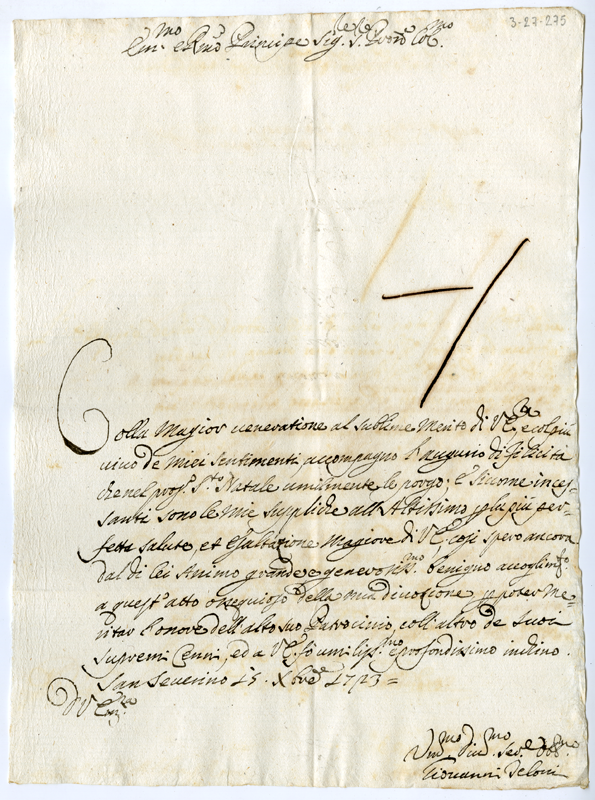 3-27-275
Em.mo e Rmo Principe Sig.re S.re Prone Col.mo
Colla Magior veneratione al sublime Merito di V.Em.za e col più
vivo de miei sentimenti accompagno l'augurio di felicità
che nel pros.o S.to Natale umilmente le porgo; e siccome inces-
santi sono le mie suppliche all'Altissimo p la più per-
fetta salute, et Esaltazione Magiore di V.E. così spero ancora
dal di lei Animo grande e generosiss.mo benigno accoglim.to
a quest'atto ossequioso della mia divozione, p poter me-
ritar l'onore dell'alto suo Patrocinio, coll'altro de Suoi
supremi Cenni, ed a V.E. fò umiliss.mo e profondissimo inchino.
San Severino 15. Xbre 1723 =
D V Em.za
Um.mo Div.mo Ser.e Obb.mo
Giovanni Seloni